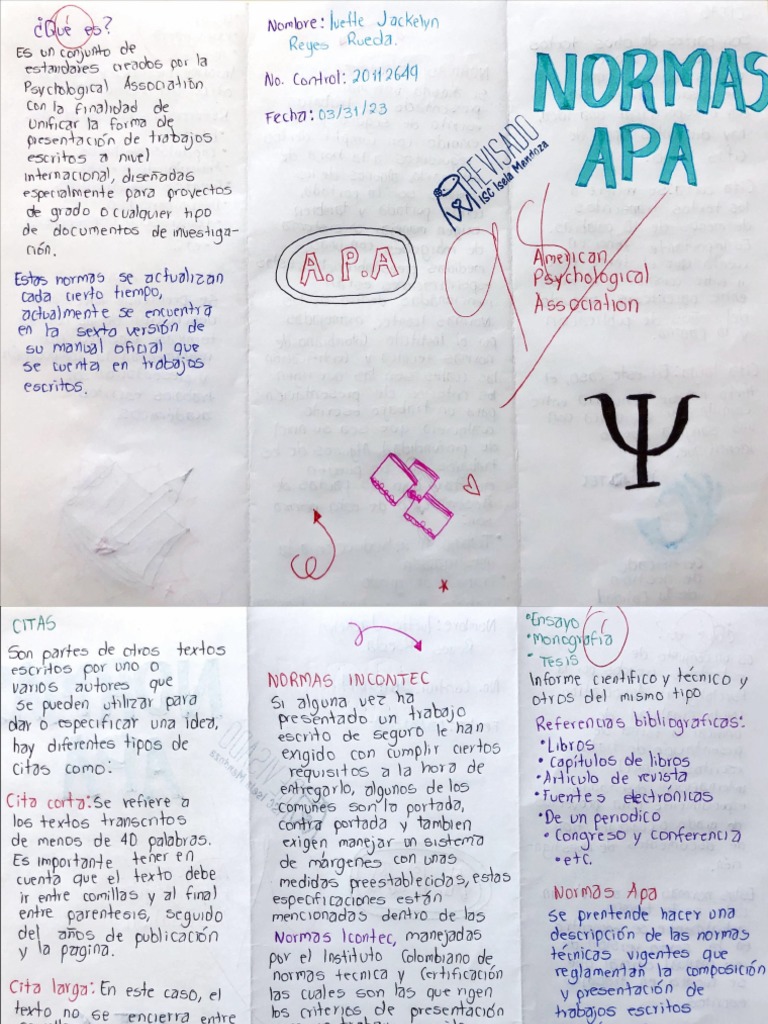 ¿Qué es?
Es un conjunto de
estandares creados por la
Psychological Association
con la finalidad de
unificar la forma de
presentación de trabajos
escritos a nivel
internacional, diseñadas
especialmente para proyectos
de grado o cualquier tipo
de documentos de investiga-
ción.
Estas normas se actualizan
cada cierto tiempo,
actualmente se encuentra
en la sexta versión de
su manual oficial que
se cuenta en trabajos
escritos.
Nombre: Ivette Jackelyn
Reyes Rueda.
No. Control: 20112649
Fecha: 03/31/23
REVISADO
ISC Isela Mendoza
A.P.A
NORMAS
APA
95
American
Psychological
Association
Ψ
CITAS
Son partes de otros textos
escritos por uno o
varios autores que
se pueden utilizar para
dar o especificar una idea,
hay diferentes tipos de
citas como:
Cita corta: Se refiere a
los textos transcritos
de menos de 40 palabras.
Es importante tener en
cuenta que el texto debe
ir entre comillas y al final
entre parentesis, seguido
del años de publicación
y la pagina.
Cita larga: En este caso, el
texto no se encierra entre
NORMAS INCONTEC
Si alguna vez ha
presentado un trabajo
escrito de seguro le han
exigido con cumplir ciertos
requisitos a la hora de
entregarlo, algunos de los
comunes son la portada,
contra portada y tambien
exigen manejar un sistema
de márgenes con unas
medidas preestablecidas, estas
especificaciones están
mencionadas dentro de las
Normas Icontec, manejadas
por el Instituto Colombiano de
normas tecnica y Certificación
las cuales son las que rigen
los criterios de presentación
•Ensayo
•Monografía
•Tesis
Informe cientifico y técnico y
otros del mismo tipo
Referencias bibliograficas:
•Libros
•Capítulos de libros
•Articulo de revista
•Fuentes electrónicas
•De un periodico
•Congreso y conferencia
•etc.
Normas Apa
se prentende hacer una
descripción de las normas
técnicas vigentes que
reglamentan la composición
y presentación de
trabajos escritos